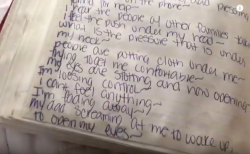 the phone~
hear the people of other families
feel the push under my head~
what is the pressure that is under
my neck~
people are putting cloth under me
trying to get me comfortable~
my eyes are slotting and now opening
I'm loosing control
I can't feel anything~
I'm fading away~
my dad screaming at me to wake up,
to open my eyes~